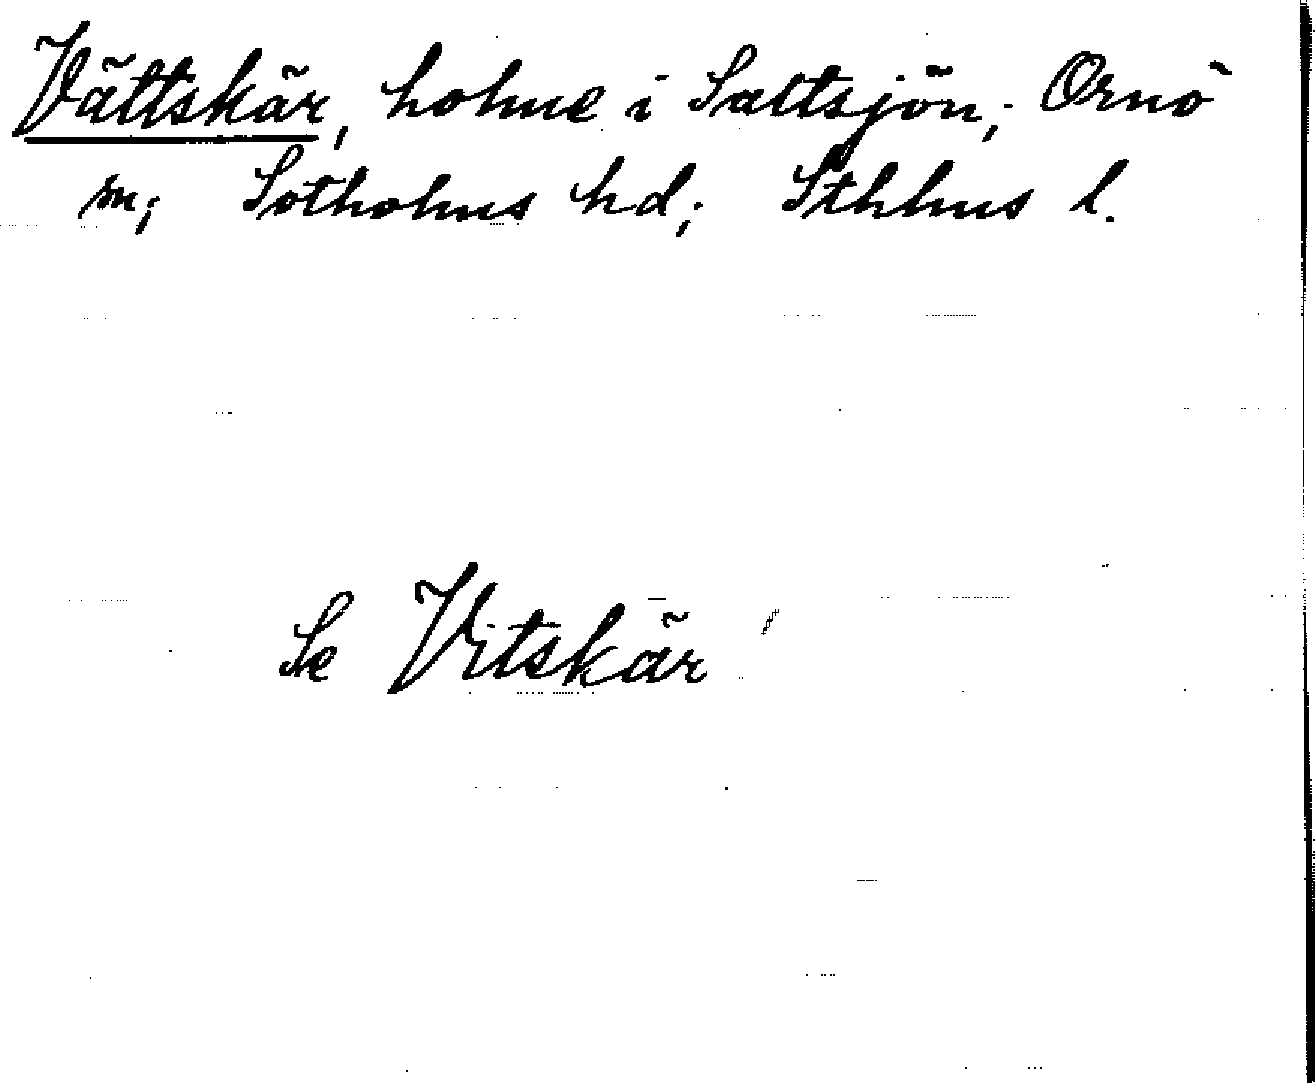 Vättskär, holme i Saltsjön; Ornö
sn; Sotholms hd; Sthlms l.
Se Vitskär